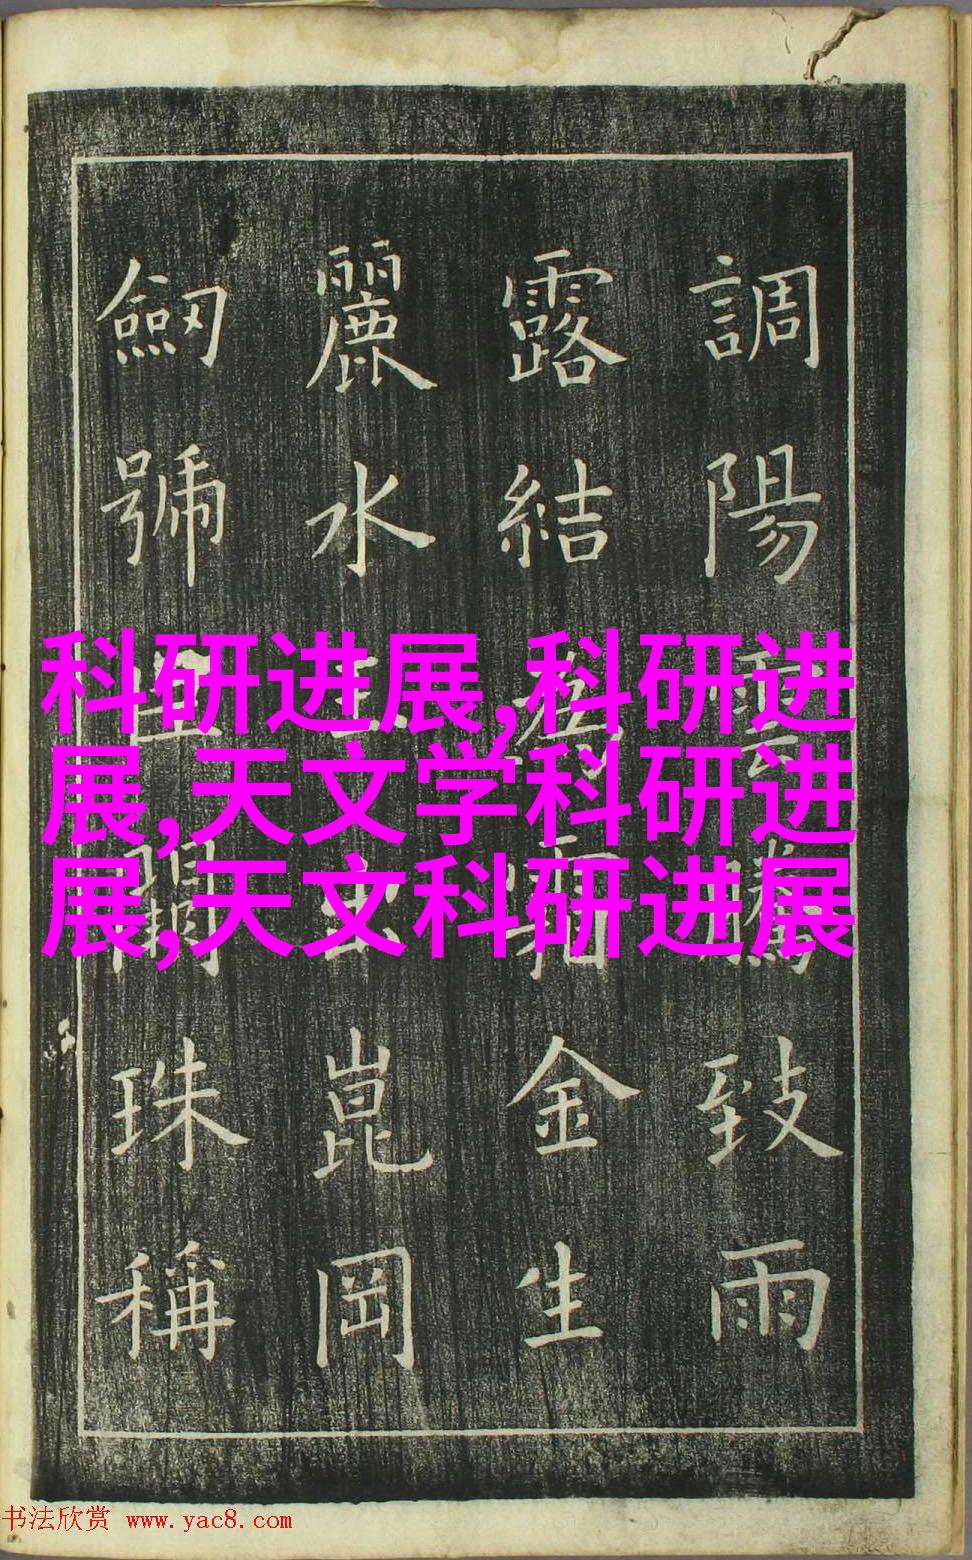 調陽雲騰致雨
露結為霜金生
麗水玉出崑岡
劔號巨闕珠稱
科研进展,科研进
展,天文学科研进
展,天文科研进展
书法欣赏 www.yac8.com